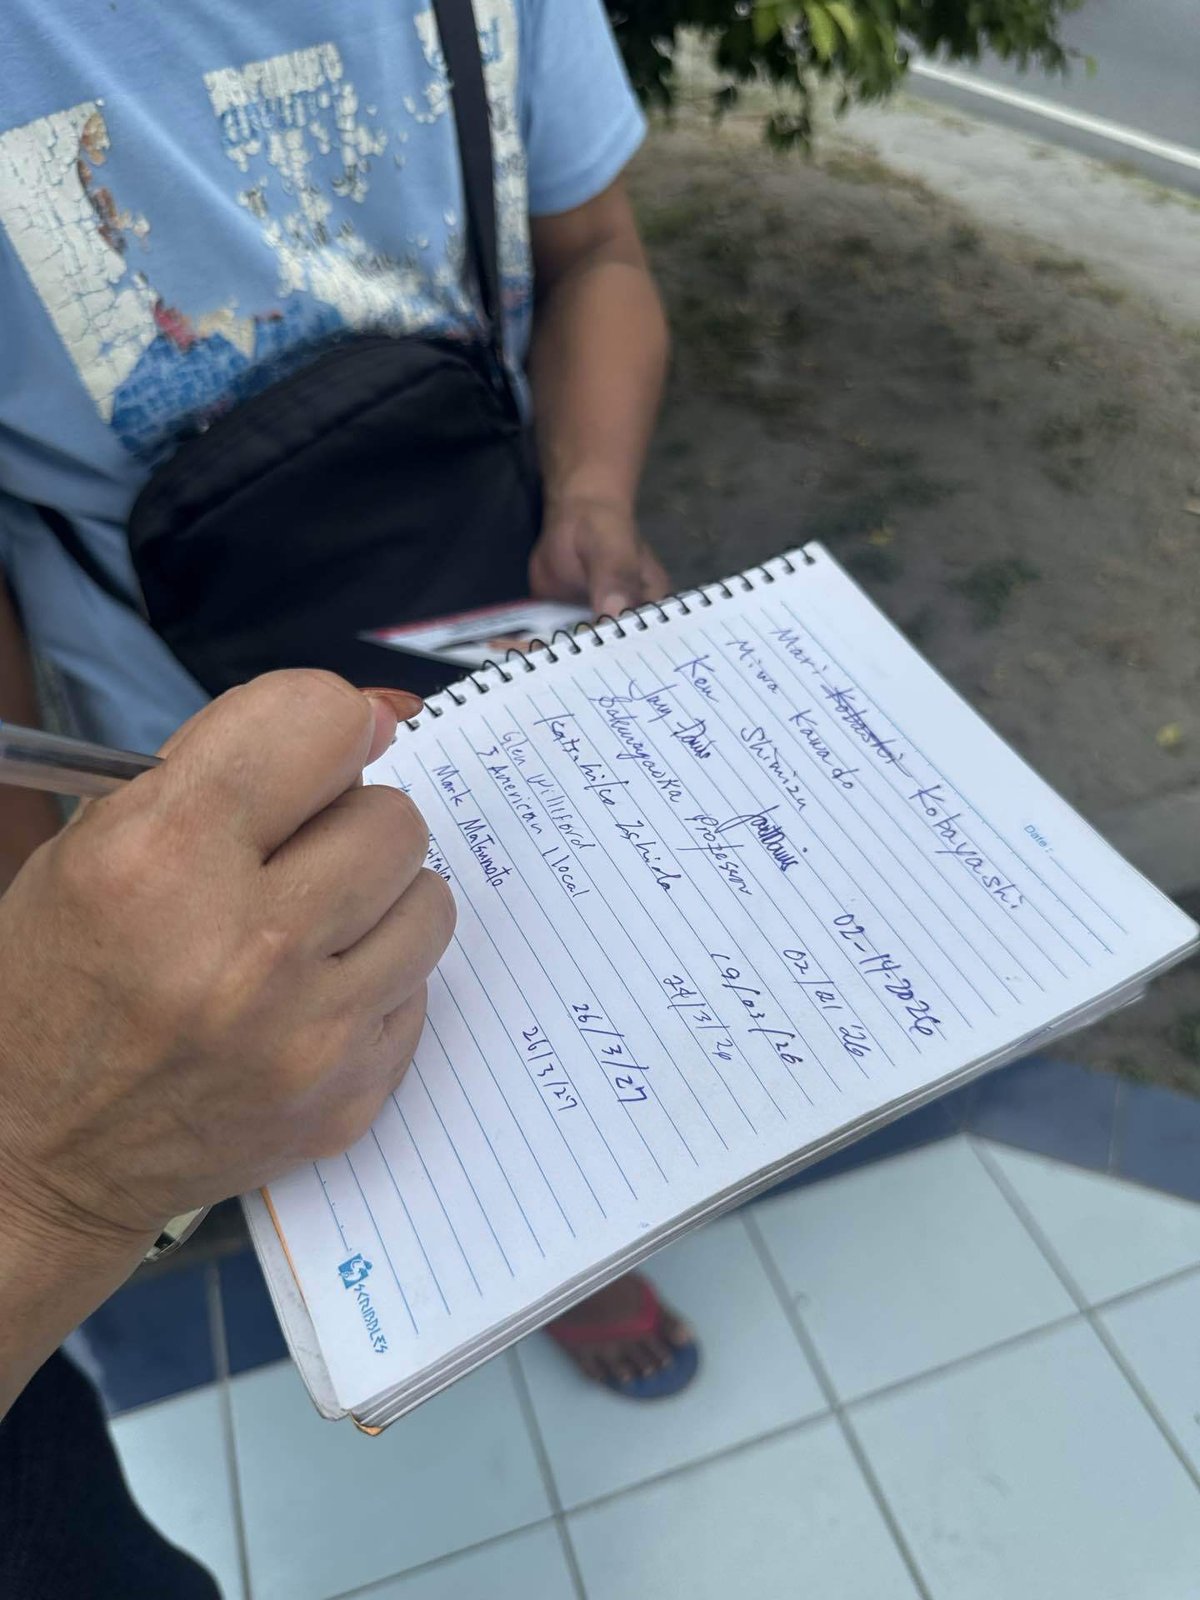 Date:
Mari Kobashi Kobayashi
Miwa Kawado
Ken Shimizu 02-14-2026
Jary Davis 02/21/26
Sakuragaoka professor 19/03/26
Katsuhiko Ishida 24/3/26
Glen Williford
3 American 1 local 26/3/27
Mark Matsumoto 26/3/27
SCRIBBLES